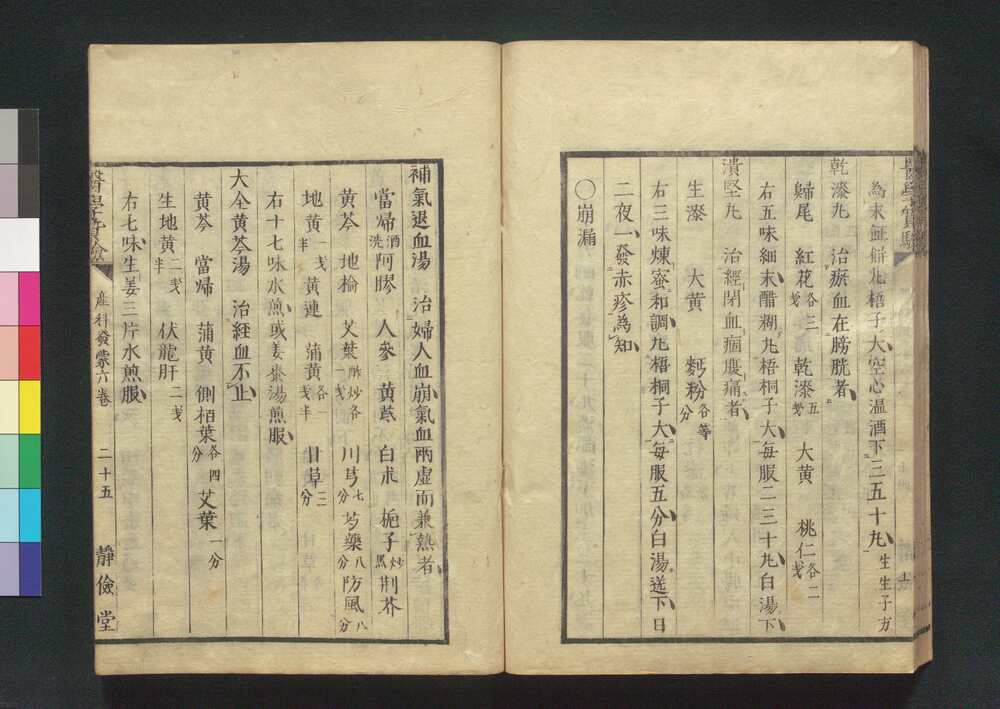 為末䴵餅丸梧子大空心温酒下三五十丸生生子方
乾漆丸 治瘀血在膀胱者
歸尾 紅花各三戔 乾漆五戔 大黄 桃仁各二戔
右五味細末醋糊丸梧桐子大毎服二三十丸白湯下
潰堅丸 治經閉血痼腰痛者
生漆 大黄 麪粉各等分
右三味煉蜜和調丸梧桐子大毎服五分白湯送下日
二夜一發赤疹為知
○崩漏
補氣退血湯 治婦人血崩氣血兩虚而兼熱者
當歸酒洗 阿膠 人參 黄芪 白朮 梔子炒黑 荆芥
黄芩 地榆 艾葉酢炒各一戔 川芎七分 芍藥八分 防風八分
地黄一戔半 黄連 蒲黄各一戔半 甘草二分
右十七味水煎或姜棗湯煎服
大全黄芩湯 治経血不止
黄芩 當帰 蒲黄 側栢葉各四分 艾葉一分
生地黄二戔半 伏龍肝二戔
右七味生姜三片水煎服
産科發蒙六卷 二十五 靜儉堂